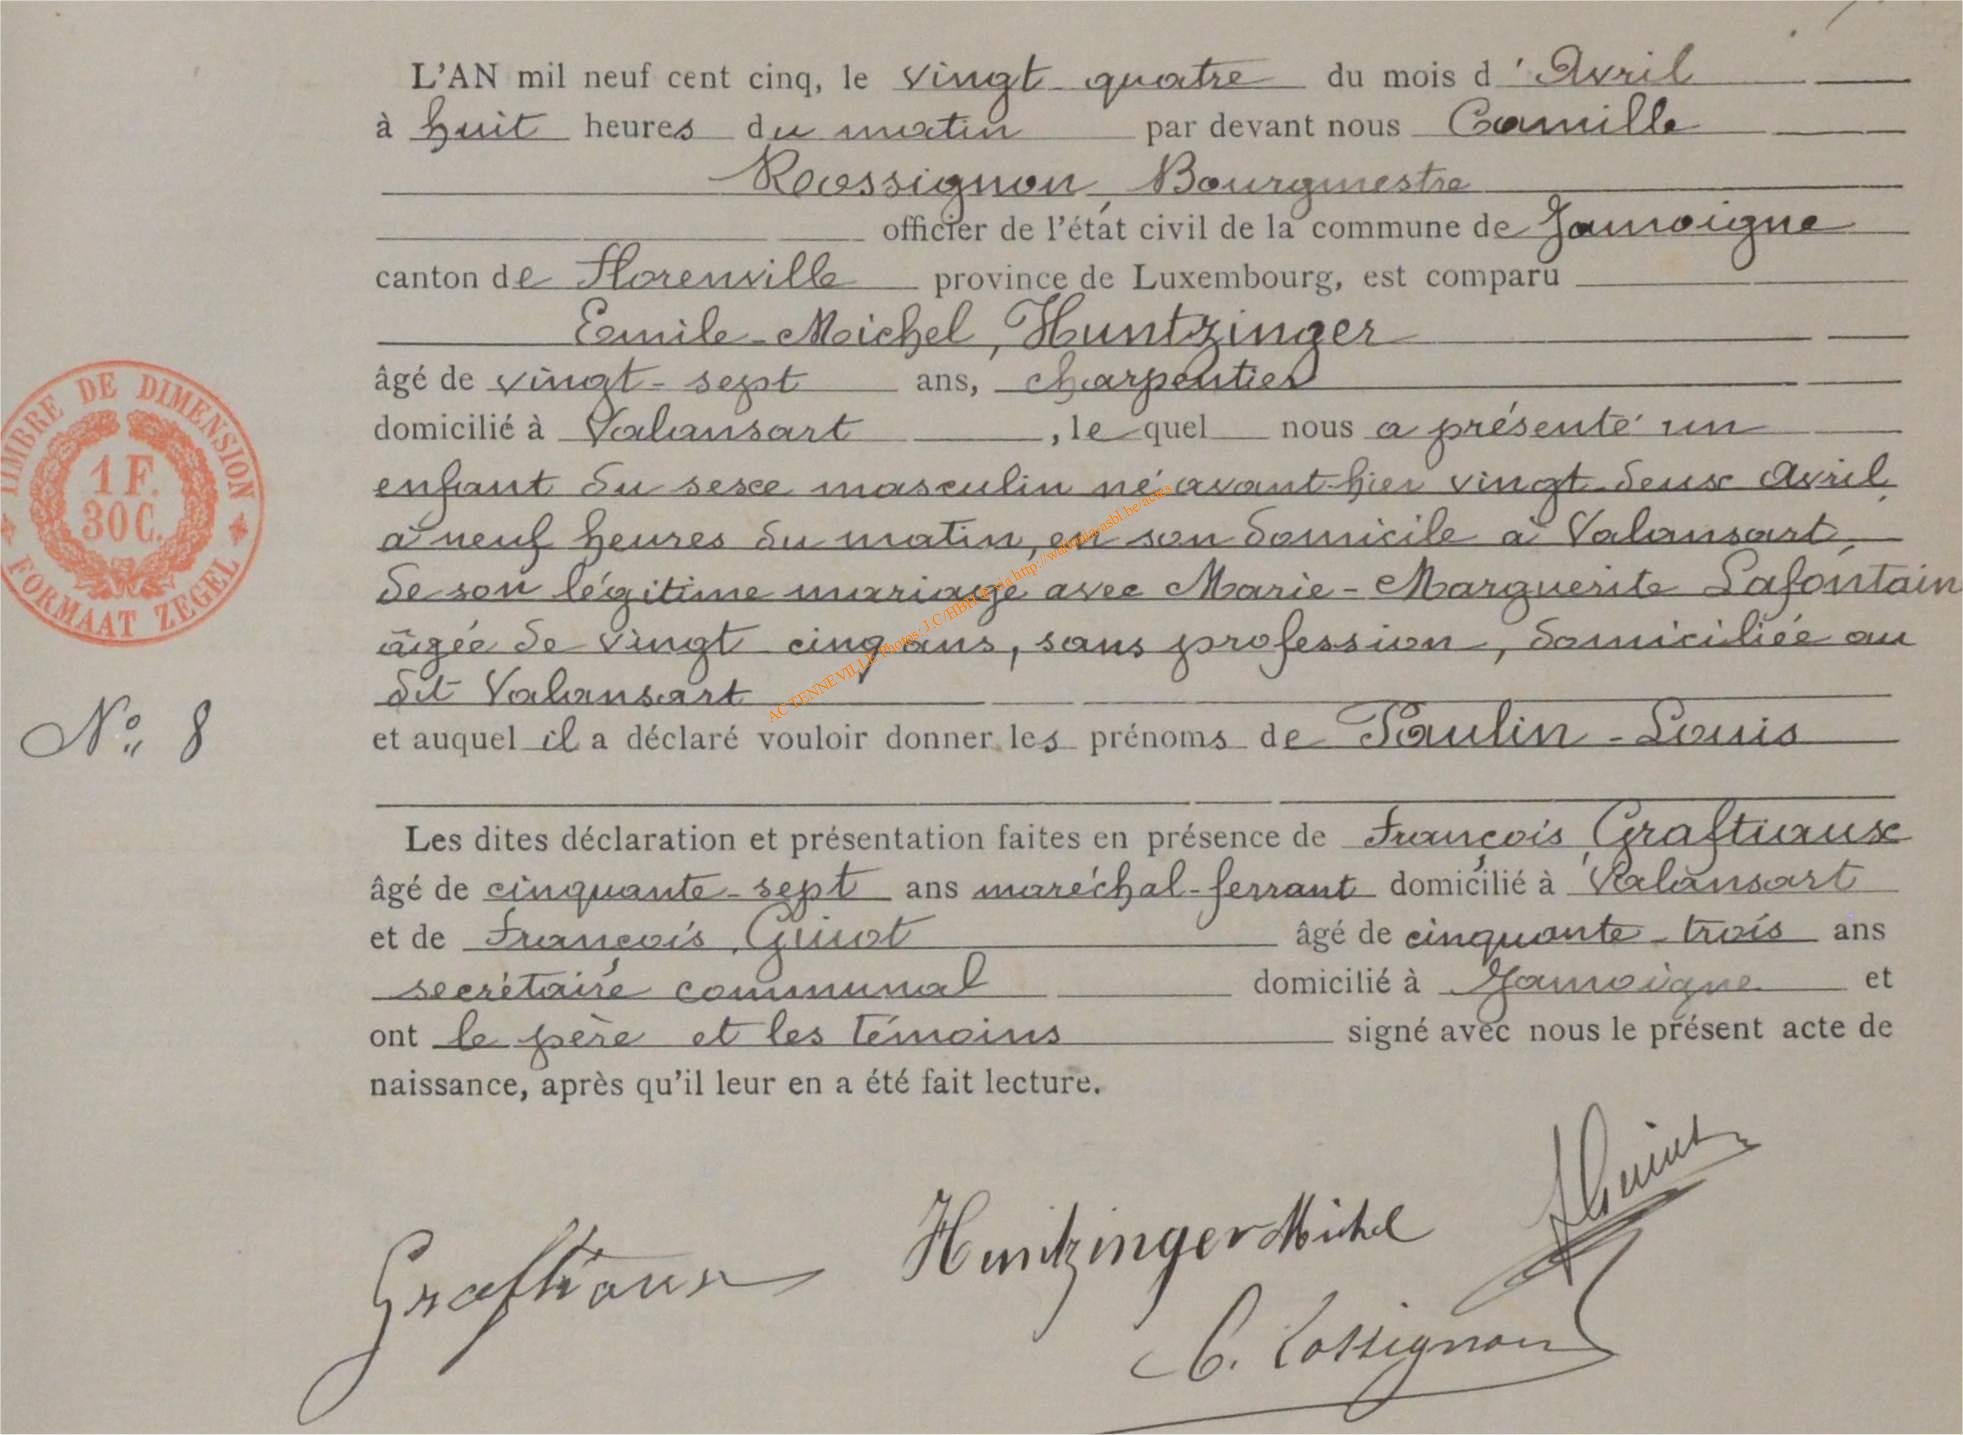 L'AN mil neuf cent cinq, le vingt-quatre du mois d'Avril
à huit heures du matin par devant nous Camille
Rossignon, Bourgmestre
officier de l'état civil de la commune de Jamoigne
canton de Florenville province de Luxembourg, est comparu
Emile-Michel, Huntzinger
âgé de vingt-sept ans, charpentier
domicilié à Valansart, le quel nous a présenté un
enfant du sexe masculin né avant-hier vingt-deux Avril
à neuf heures du matin, en son domicile à Valansart,
de son légitime mariage avec Marie-Marguerite Lafontain
âgée de vingt cinq ans, sans profession, domiciliée au
dit Valansart
et auquel il a déclaré vouloir donner les prénoms de Paulin-Louis
Les dites déclaration et présentation faites en présence de François Graftiaux
âgé de cinquante-sept ans maréchal-ferrant domicilié à Valansart
et de François, Guiot âgé de cinquante-trois ans
secrétaire communal domicilié à Jamoigne et
ont le père et les témoins signé avec nous le présent acte de
naissance, après qu'il leur en a été fait lecture.
TIMBRE DE DIMENSION
1 F.
30 C.
FORMAAT ZEGEL
No. 8
AC TENNEVILLE Photos: J.C/HBH
Graftiaux
Huntzinger Michel
Guiot
C. Rossignon